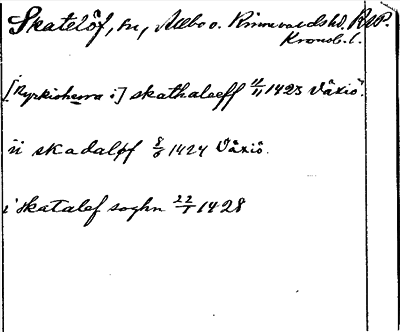 Skatelöf, sn, Allbo o. Kinnevalds hd. RAP.
Kronob. l.
[Kyrkioherra i] skathaleeff 11/11 1423 Växiö.
ii skadaløf 8/6 1424 Växiö.
i skatalef soghn 22/1 1428